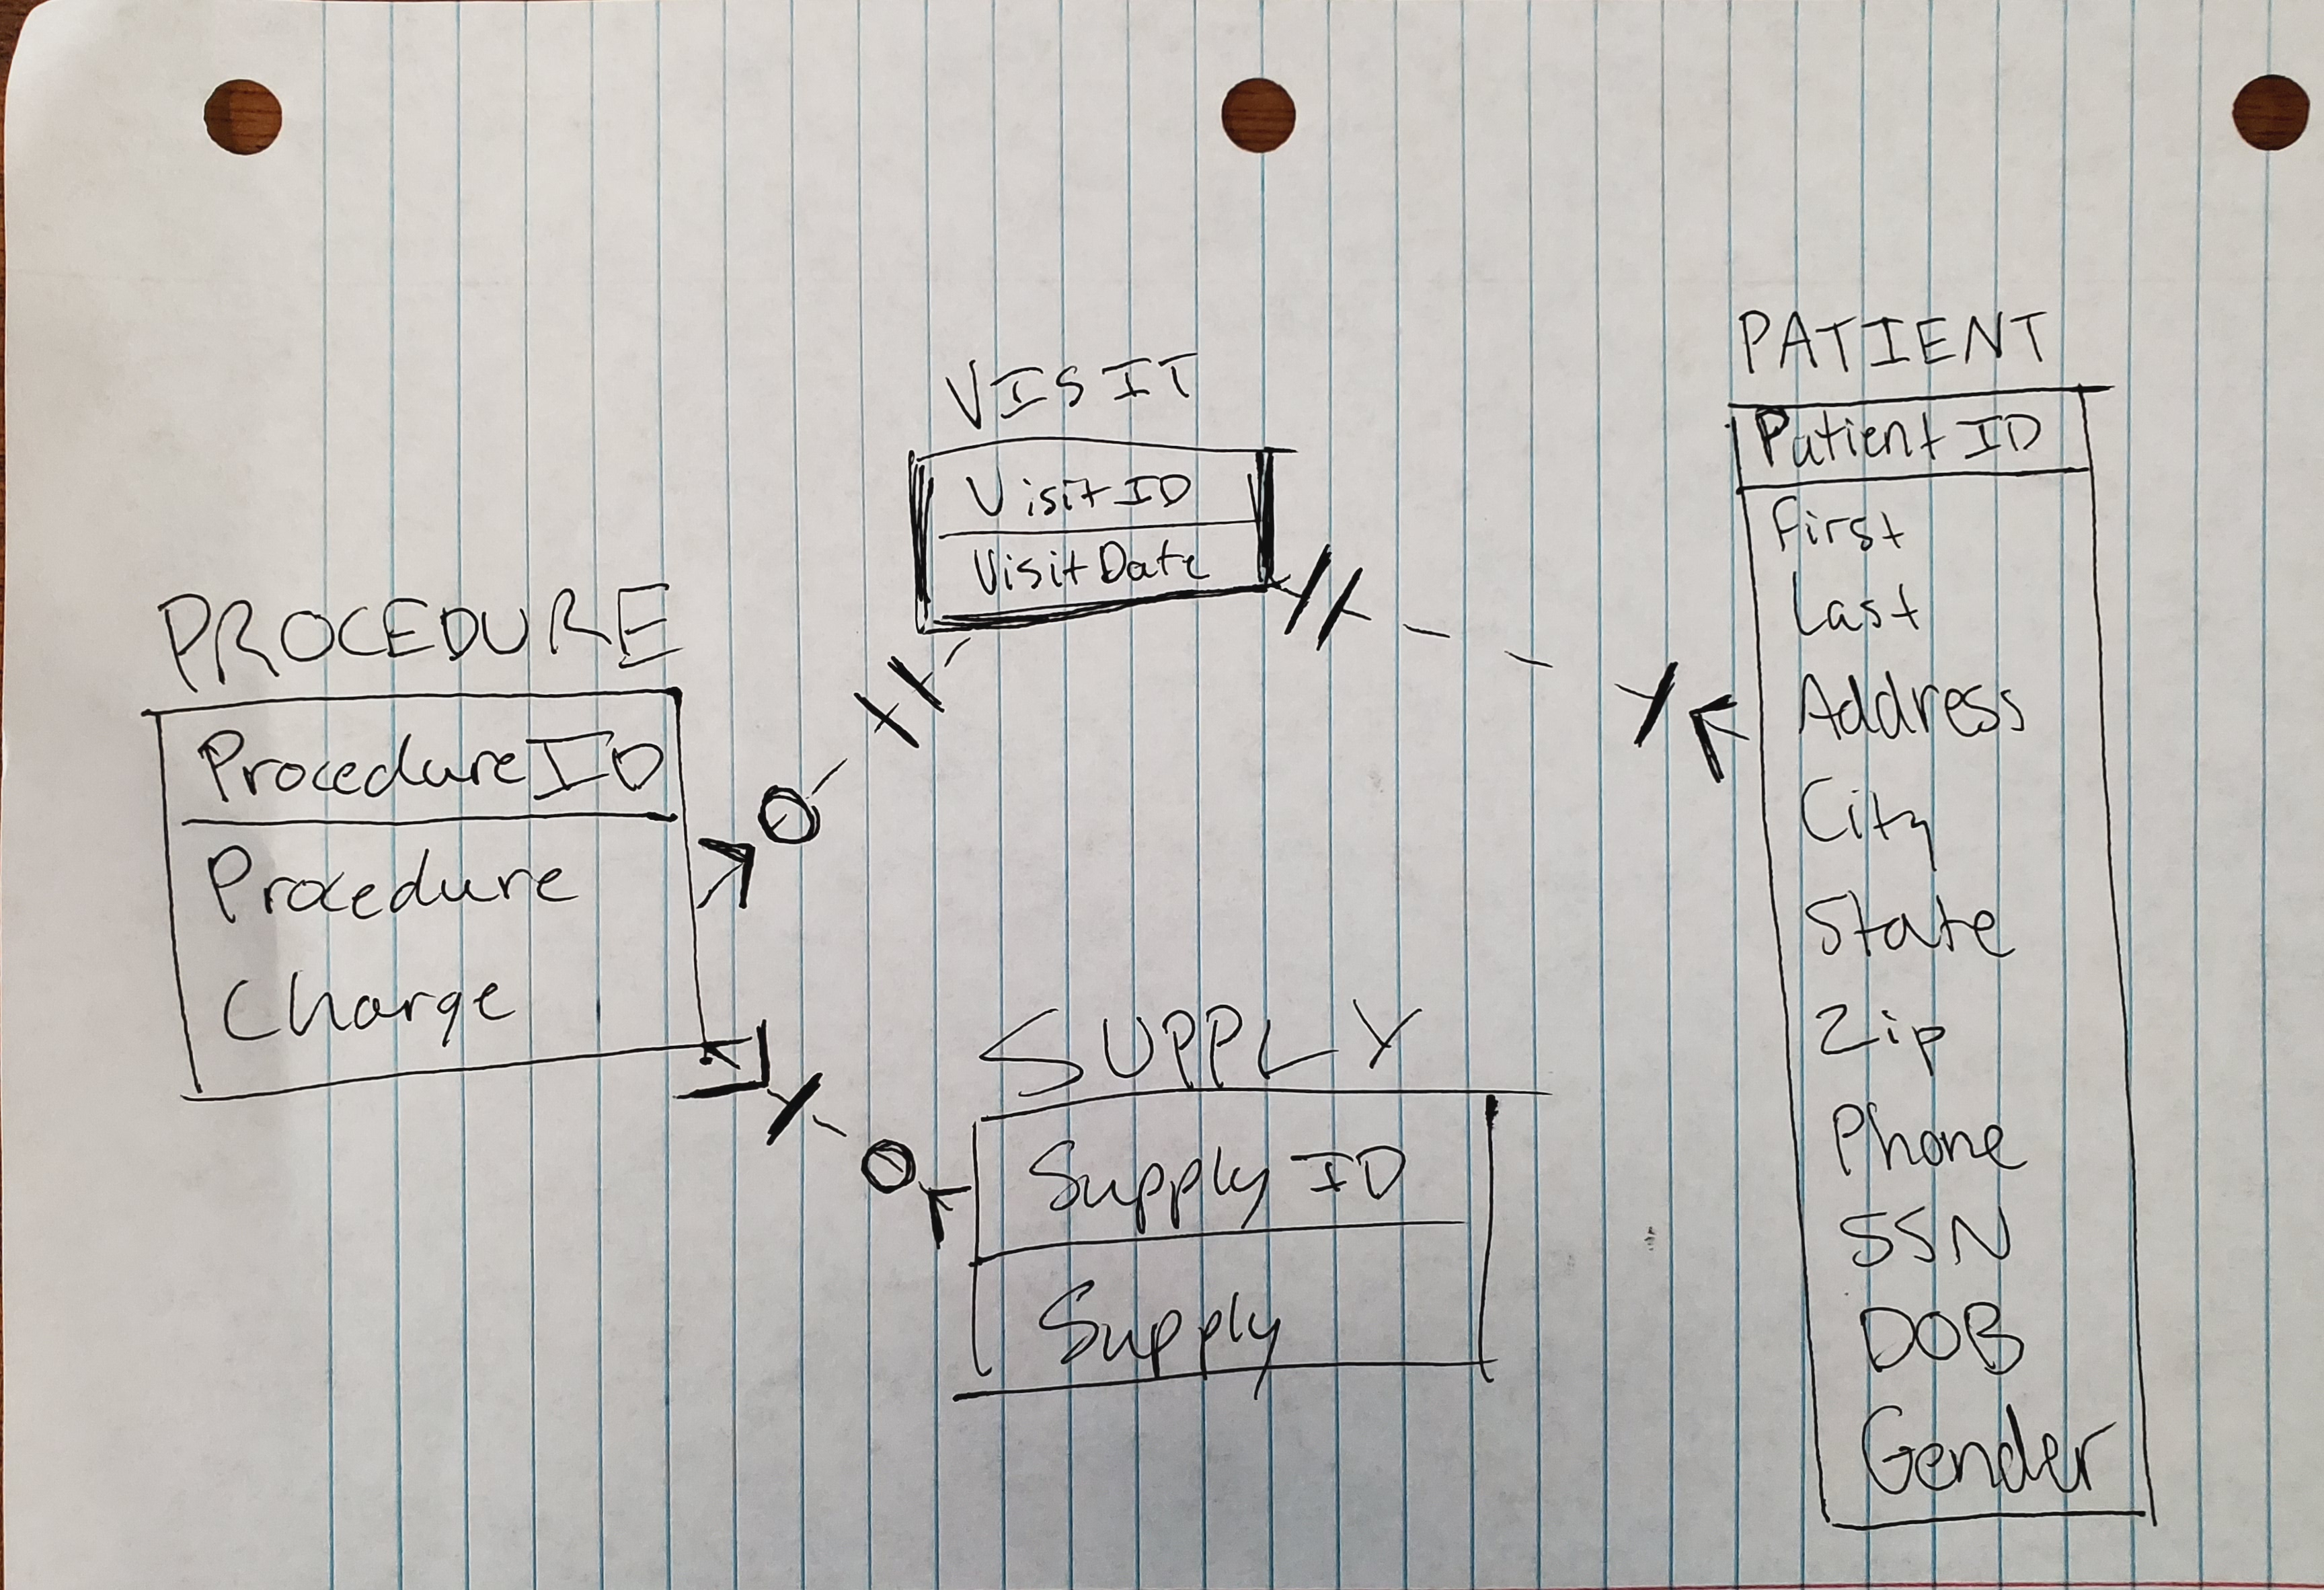 PROCEDURE
ProcedureID
Procedure
Charge
VISIT
VisitID
VisitDate
SUPPLY
Supply ID
Supply
PATIENT
PatientID
First
Last
Address
City
State
Zip
Phone
SSN
DOB
Gender